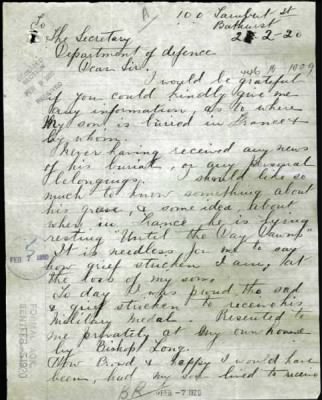 To
A
100 Lambert St
Bathurst
The Secretary
2-2-20
Department of defence
Dear Sir,
I would be grateful
if you could kindly give me
any information, as to where
My son is buried in France &
by whom.
Never having received any news
of his burial, or any personal
belongings. I should like so
much to know something about
his grave, & some idea, about
where in France he is lying
resting "Until the Day Dawns"
It is needless for me to say
how grief stricken I am, at
the loss of my son.
To day I was proud tho sad
& grief stricken to receive his
Military Medal. Presented to
me privately at my own house
by Bishop Long.
How Proud & happy I would have
been, had my son lived to receive
FEB -7 1920